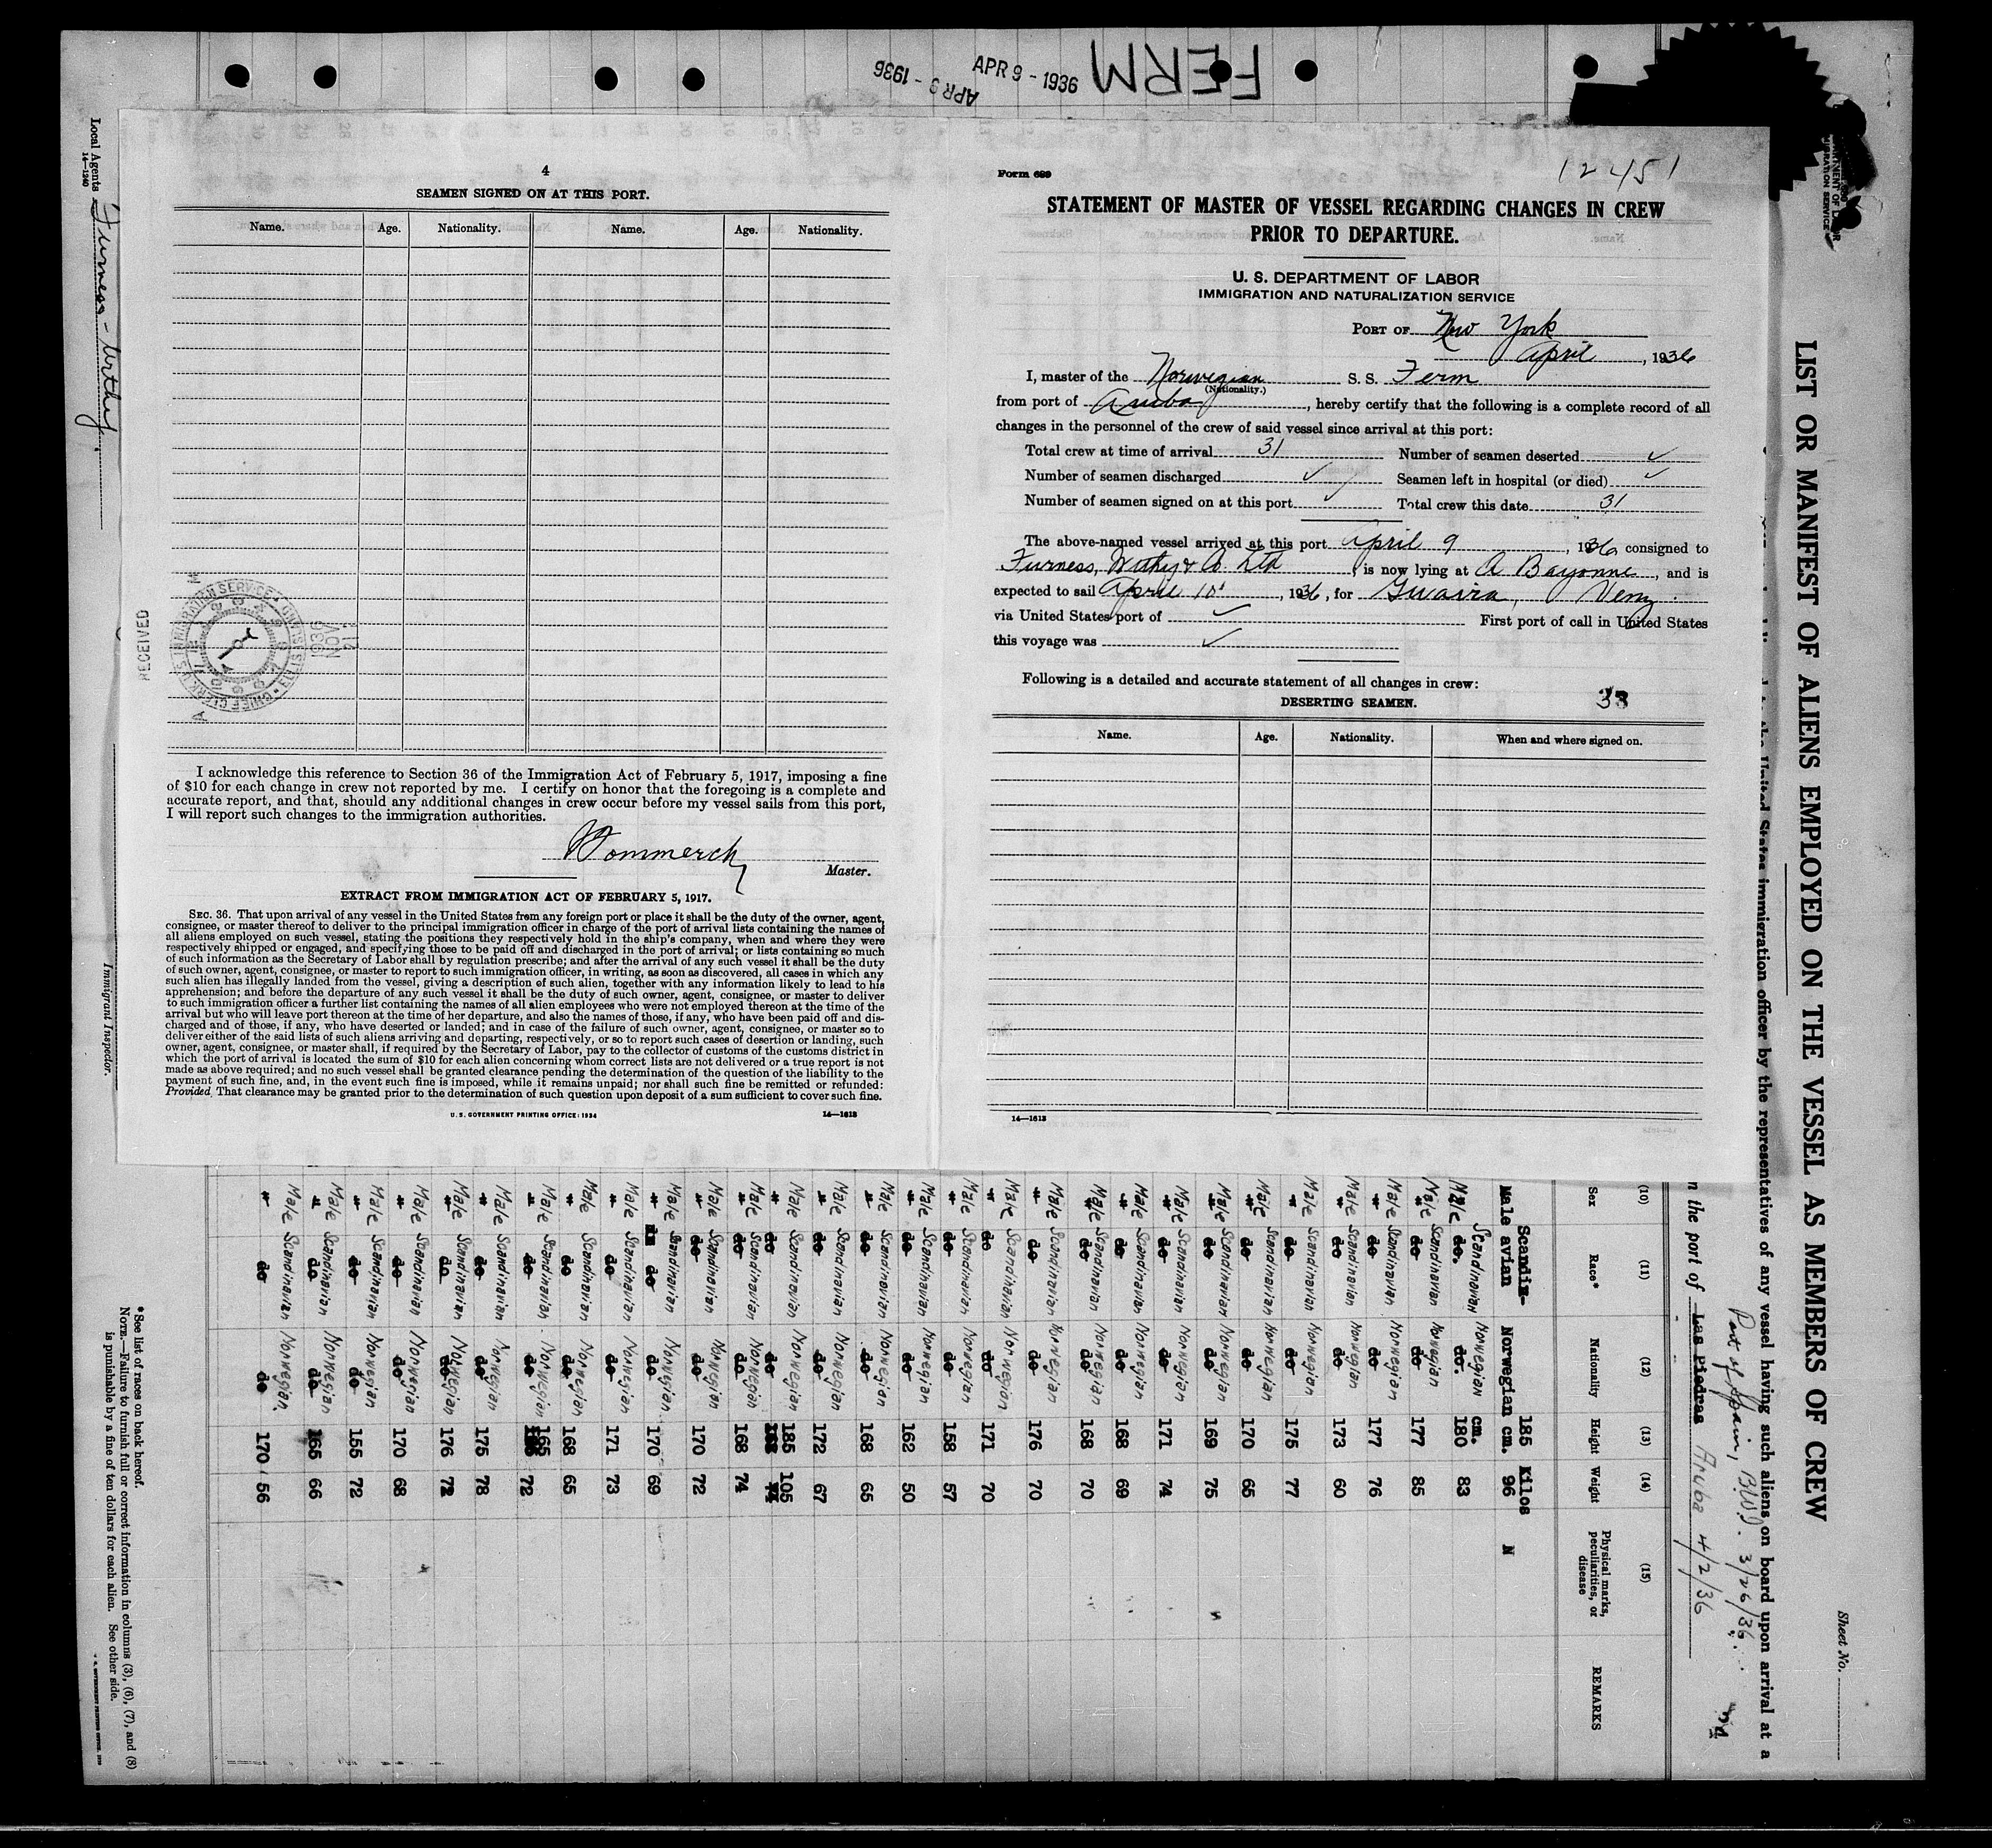 FERM
APR 9 - 1936
APR 9 - 1936
4
SEAMEN SIGNED ON AT THIS PORT.
Name. Age. Nationality. Name. Age. Nationality.
I acknowledge this reference to Section 36 of the Immigration Act of February 5, 1917, imposing a fine
of $10 for each change in crew not reported by me. I certify on honor that the foregoing is a complete and
accurate report, and that, should any additional changes in crew occur before my vessel sails from this port,
I will report such changes to the immigration authorities.
Master.
EXTRACT FROM IMMIGRATION ACT OF FEBRUARY 5, 1917.
SEC. 36. That upon arrival of any vessel in the United States from any foreign port or place it shall be the duty of the owner, agent,
consignee, or master thereof to deliver to the principal immigration officer in charge of the port of arrival lists containing the names of
all aliens employed on such vessel, stating the positions they respectively hold in the ship's company, when and where they were
respectively shipped or engaged, and specifying those to be paid off and discharged in the port of arrival; or lists containing so much
of such information as the Secretary of Labor shall by regulation prescribe; and after the arrival of any such vessel it shall be the duty
of such owner, agent, consignee, or master to report to such immigration officer, in writing, as soon as discovered, all cases in which any
such alien has illegally landed from the vessel, giving a description of such alien, together with any information likely to lead to his
apprehension; and before the departure of any such vessel it shall be the duty of such owner, agent, consignee, or master to deliver
to such immigration officer a further list containing the names of all alien employees who were not employed thereon at the time of the
arrival but who will leave port thereon at the time of her departure, and also the names of those, if any, who have been paid off and dis-
charged and of those, if any, who have deserted or landed; and in case of the failure of such owner, agent, consignee, or master so to
deliver either of the said lists of such aliens arriving and departing, respectively, or so to report such cases of desertion or landing, such
owner, agent, consignee, or master shall, if required by the Secretary of Labor, pay to the collector of customs of the customs district in
which the port of arrival is located the sum of $10 for each alien concerning whom correct lists are not delivered or a true report is not
made as above required; and no such vessel shall be granted clearance pending the determination of the question of the liability to the
payment of such fine, and, in the event such fine is imposed, while it remains unpaid; nor shall such fine be remitted or refunded:
Provided, That clearance may be granted prior to the determination of such question upon deposit of a sum sufficient to cover such fine.
U. S. GOVERNMENT PRINTING OFFICE: 1934 14—1613
Form 689
12451
STATEMENT OF MASTER OF VESSEL REGARDING CHANGES IN CREW
PRIOR TO DEPARTURE.
U. S. DEPARTMENT OF LABOR
IMMIGRATION AND NATURALIZATION SERVICE
PORT OF New York
April , 1936
I, master of the Norwegian S. S. Ferm
(Nationality.)
from port of Aruba , hereby certify that the following is a complete record of all
changes in the personnel of the crew of said vessel since arrival at this port:
Total crew at time of arrival 31 Number of seamen deserted ✓
Number of seamen discharged ✓ Seamen left in hospital (or died) ✓
Number of seamen signed on at this port ✓ Total crew this date 31
The above-named vessel arrived at this port April 9 , 1936, consigned to
Furness, Withy & Co. Ltd , is now lying at Bayonne , and is
expected to sail April 10 , 1936, for Guaira, Venz.
via United States port of ✓ First port of call in United States
this voyage was ✓
Following is a detailed and accurate statement of all changes in crew:
DESERTING SEAMEN.
Name. Age. Nationality. When and where signed on.
14—1613
Local Agents Furness - Withy
14—1240
RECEIVED
Immigrant Inspector.
LIST OR MANIFEST OF ALIENS EMPLOYED ON THE VESSEL AS MEMBERS OF CREW
Sheet No.
the United States immigration officer by the representatives of any vessel having such aliens on board upon arrival at a
Port of Spain, B.W.I. 3/26/36
the port of Las Piedras Aruba 4/2/36
(10) (11) (12) (13) (14) (15)
Sex Race* Nationality Height Weight Physical marks, peculiarities, or disease REMARKS
Male Scandin-avian Norwegian 185 cm. Kilos 96 N
Male Scandinavian do. Norwegian do. cm. 180 83
Male Scandinavian do Norwegian do 177 85
Male Scandinavian do Norwegian do 177 76
Male Scandinavian do Norwegian do 173 60
Male Scandinavian do Norwegian do 175 77
Male Scandinavian do Norwegian do 170 65
Male Scandinavian do Norwegian do 169 75
Male Scandinavian do Norwegian do 171 74
Male Scandinavian do Norwegian do 168 69
Male Scandinavian do Norwegian do 168 70
Male Scandinavian Norwegian 176 70
Male Scandinavian do Norwegian do 171 70
Male Scandinavian do Norwegian do 158 57
Male Scandinavian do Norwegian do 162 50
Male Scandinavian do Norwegian do 168 65
Male Scandinavian do Norwegian do 172 67
Male Scandinavian do Norwegian do 185 105
Male Scandinavian do Norwegian do 168 74
Male Scandinavian do Norwegian do 170 72
Male Scandinavian do Norwegian do 170 69
Male Scandinavian do Norwegian do 171 73
Male Scandinavian do Norwegian do 168 65
Male Scandinavian do Norwegian do 165 72
Male Scandinavian do Norwegian do 175 78
Male Scandinavian do Norwegian do 176 72
Male Scandinavian do Norwegian do 170 68
Male Scandinavian do Norwegian do 155 72
Male Scandinavian do Norwegian do 165 66
Male Scandinavian do Norwegian do 170 56
*See list of races on back hereof.
NOTE.—Failure to furnish full or correct information in columns (3), (6), (7), and (8)
is punishable by a fine of ten dollars for each alien. See other side.